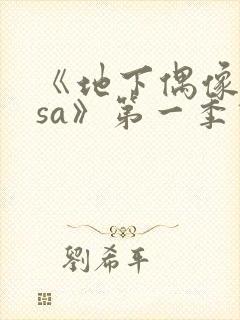 《地下偶像
sa》第一季
劉希平